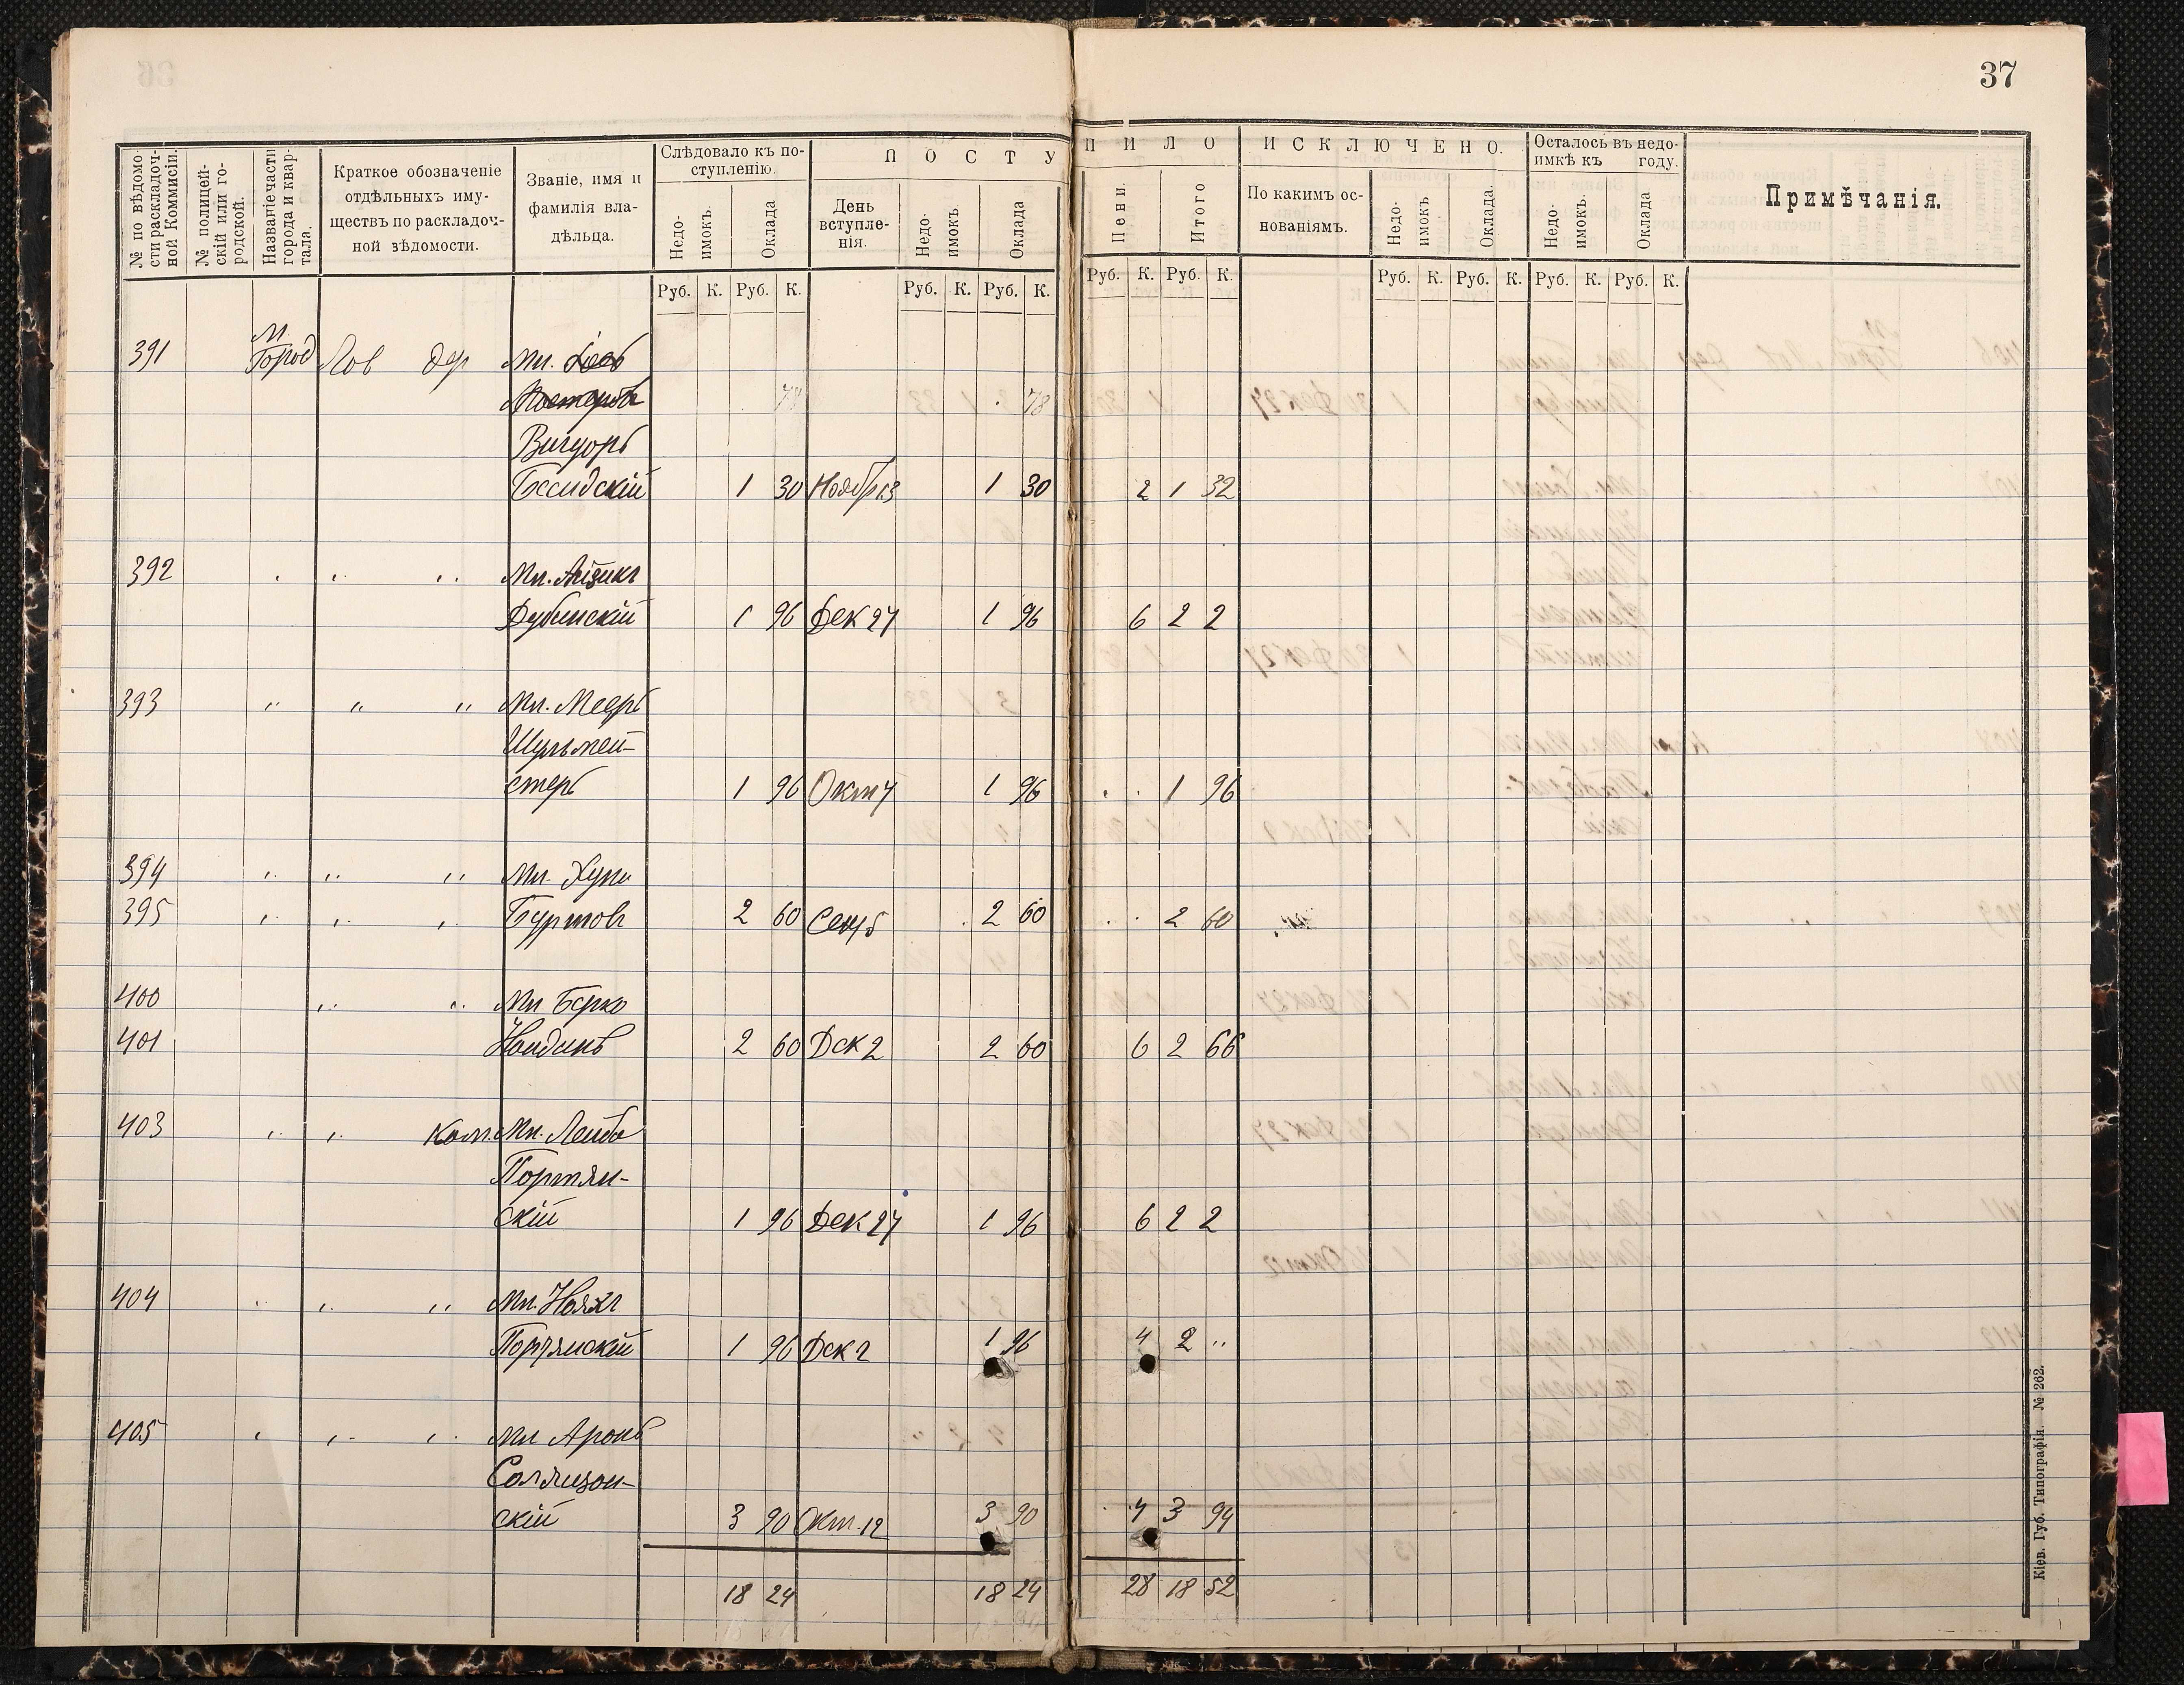 37
№ по вѣдомо-
сти раскладоч-
ной Коммисіи.
№ полицей-
скій или го-
родской.
Названіе части
города и квар-
тала.
Краткое обозначеніе
отдѣльныхъ иму-
ществъ по раскладоч-
ной вѣдомости.
Званіе, имя и
фамилія вла-
дѣльца.
Слѣдовало къ по-
ступленію.
Недо-
имокъ.
Оклада
П О С Т У П И Л О
День
вступле-
нія.
Недо-
имокъ.
Оклада
Пени.
Итого
И С К Л Ю Ч Е Н О.
По какимъ ос-
нованіямъ.
Недо-
имокъ
Оклада.
Осталось въ недо-
имкѣ къ году.
Недо-
имокъ.
Оклада
Примѣчанія.
Руб. К. Руб. К. Руб. К. Руб. К. Руб. К. Руб. К. Руб. К. Руб. К. Руб. К. Руб. К.
М.
391 Город Лав дер Мщ.
78 78
Бесидскій 1 30 Ноябр 13 1 30 2 1 32
392 " " " Мщ. Айзикъ
Дубинскій 1 96 Дек 27 1 96 6 2 2
393 " " " Мщ. Мееръ
Шульмей-
стеръ 1 96 Окт 7 1 96 . . 1 96
394 " " " Мщ.
395 " " " Буртовъ 2 60 Сент 2 60 . . 2 60
400 " " Мщ Берко
401 2 60 Дек 2 2 60 6 2 66
403 " " Кам. Мщ. Лейба
Портян-
скій 1 96 Дек 27 1 96 6 2 2
404 " " " Мщ. Нояхъ
Портянскій 1 96 Дек 2 1 96 4 2 "
405 " " " Мщ Аронъ
скій 3 90 Окт. 12 3 90 4 3 94
18 24 18 24 28 18 52
Кіев. Губ. Типографія. № 262.